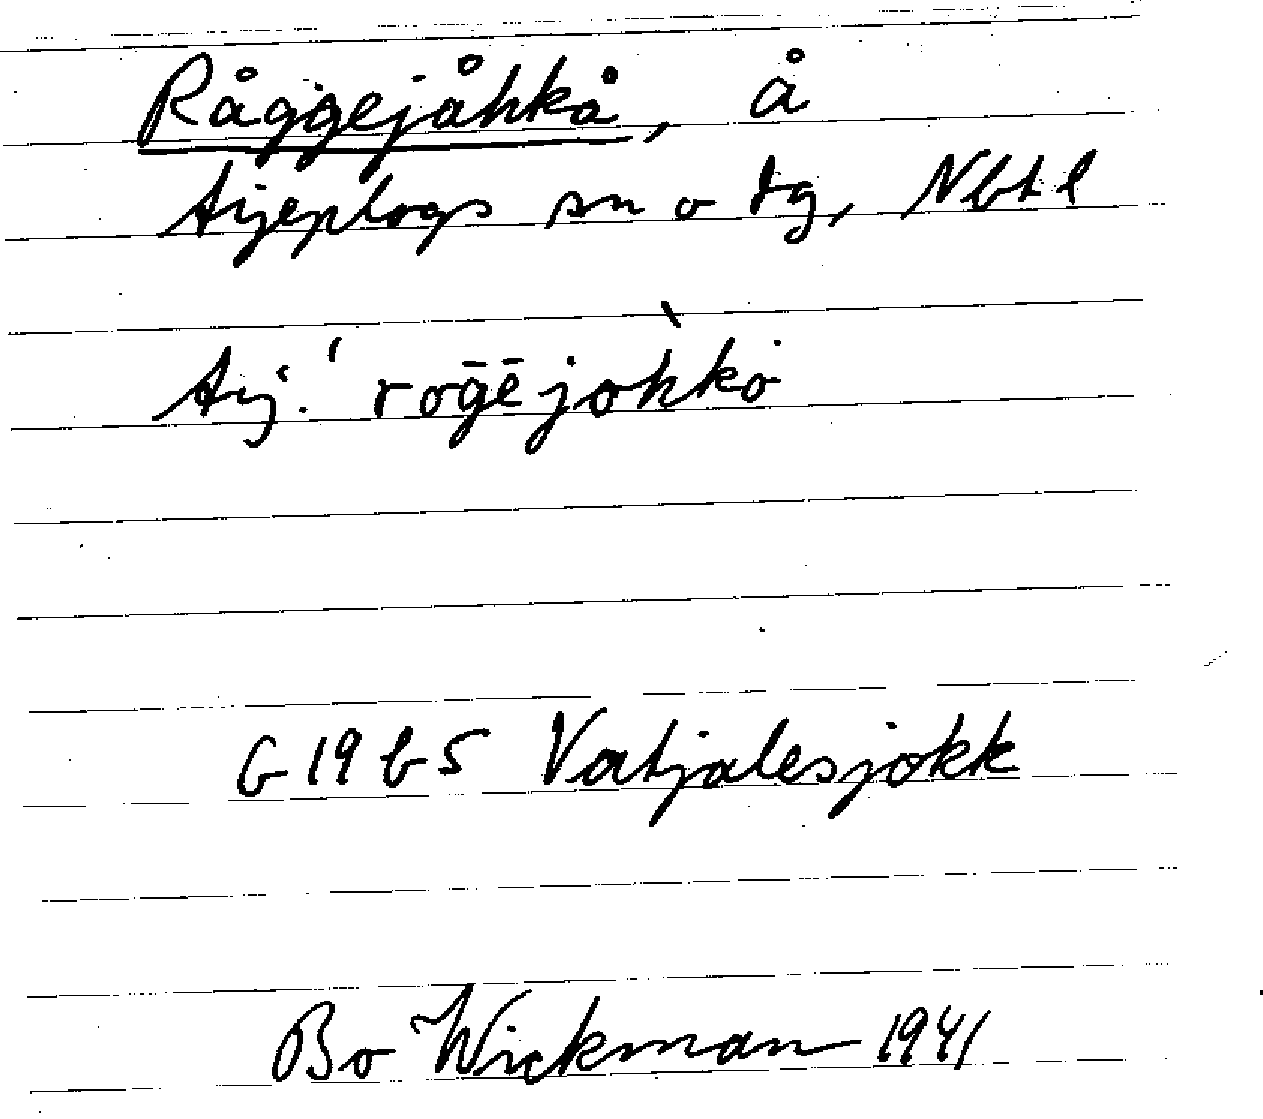 Råggejåhkå, å
Arjeplogs sn o tg, Nbtl
Arj. ʹroḡējòhkò
G19b5 Vatjalesjokk
Bo Wickman 1941